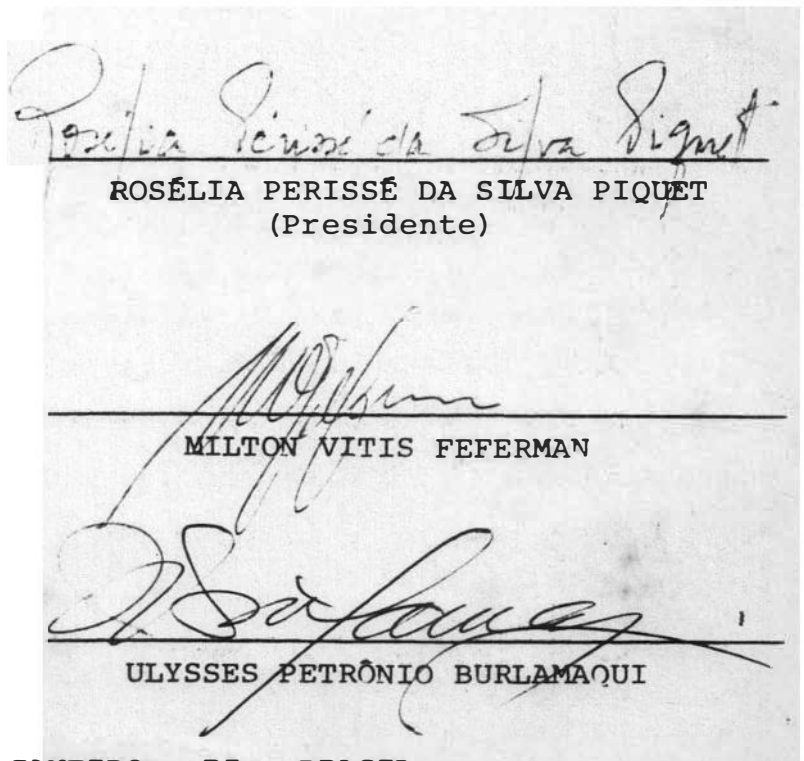 Rosélia Périssé da Silva Piquet
ROSÉLIA PERISSÉ DA SILVA PIQUET
(Presidente)
MILTON VITIS FEFERMAN
ULYSSES PETRÔNIO BURLAMAQUI